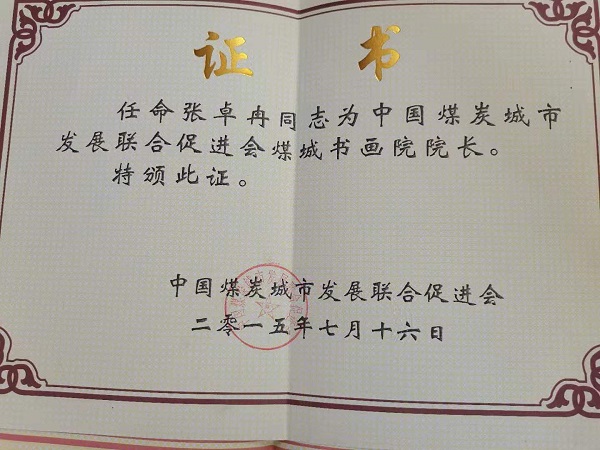 证书
任命张卓冉同志为中国煤炭城市
发展联合促进会煤城书画院院长。
特颁此证。
中国煤炭城市发展联合促进会
二零一五年七月十六日